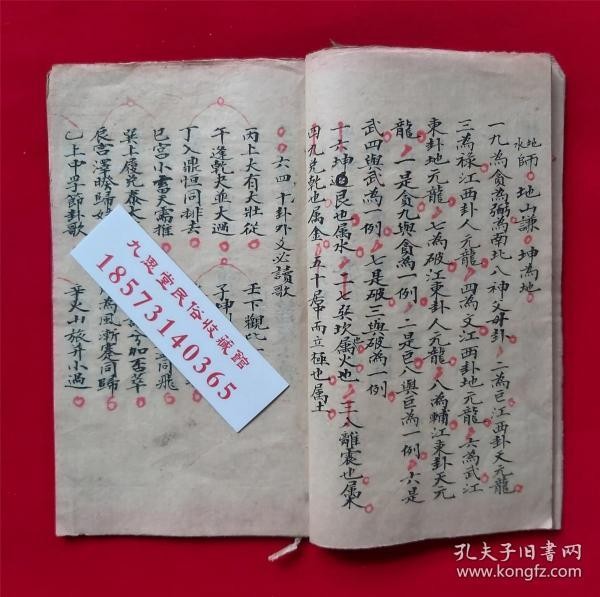 水地師
地山謙
坤為地
一九為貪為弼為南北八神父母卦
二為巨江西卦天元龍
三為祿江西卦人元龍
四為文江西卦地元龍
六為武江
東卦地元龍
七為破江東卦人元龍
八為輔江東卦天元
龍
一是貪九與貪為一例
二是巨八與巨為一例
六是
武四與武為一例
七是破三與破為一例
十六坤艮也属水
二七巽坎属火也
三八離震也属木
四九兑乾也属金
五十居中而立極也属土
六四十卦外爻必讀歌
丙上大有大壯從
壬下觀比
午逢乾夬並大過
子坤
丁入鼎恒同排去
巳宮小畜天需推
同飛
巽上履兑泰大
如否萃
辰宮澤睽歸妹
為風漸蹇同歸
乙上中孚節卦歌
辛火山旅并小過
九思堂民俗收藏館
18573140365
孔夫子旧书网
www.kongfz.com